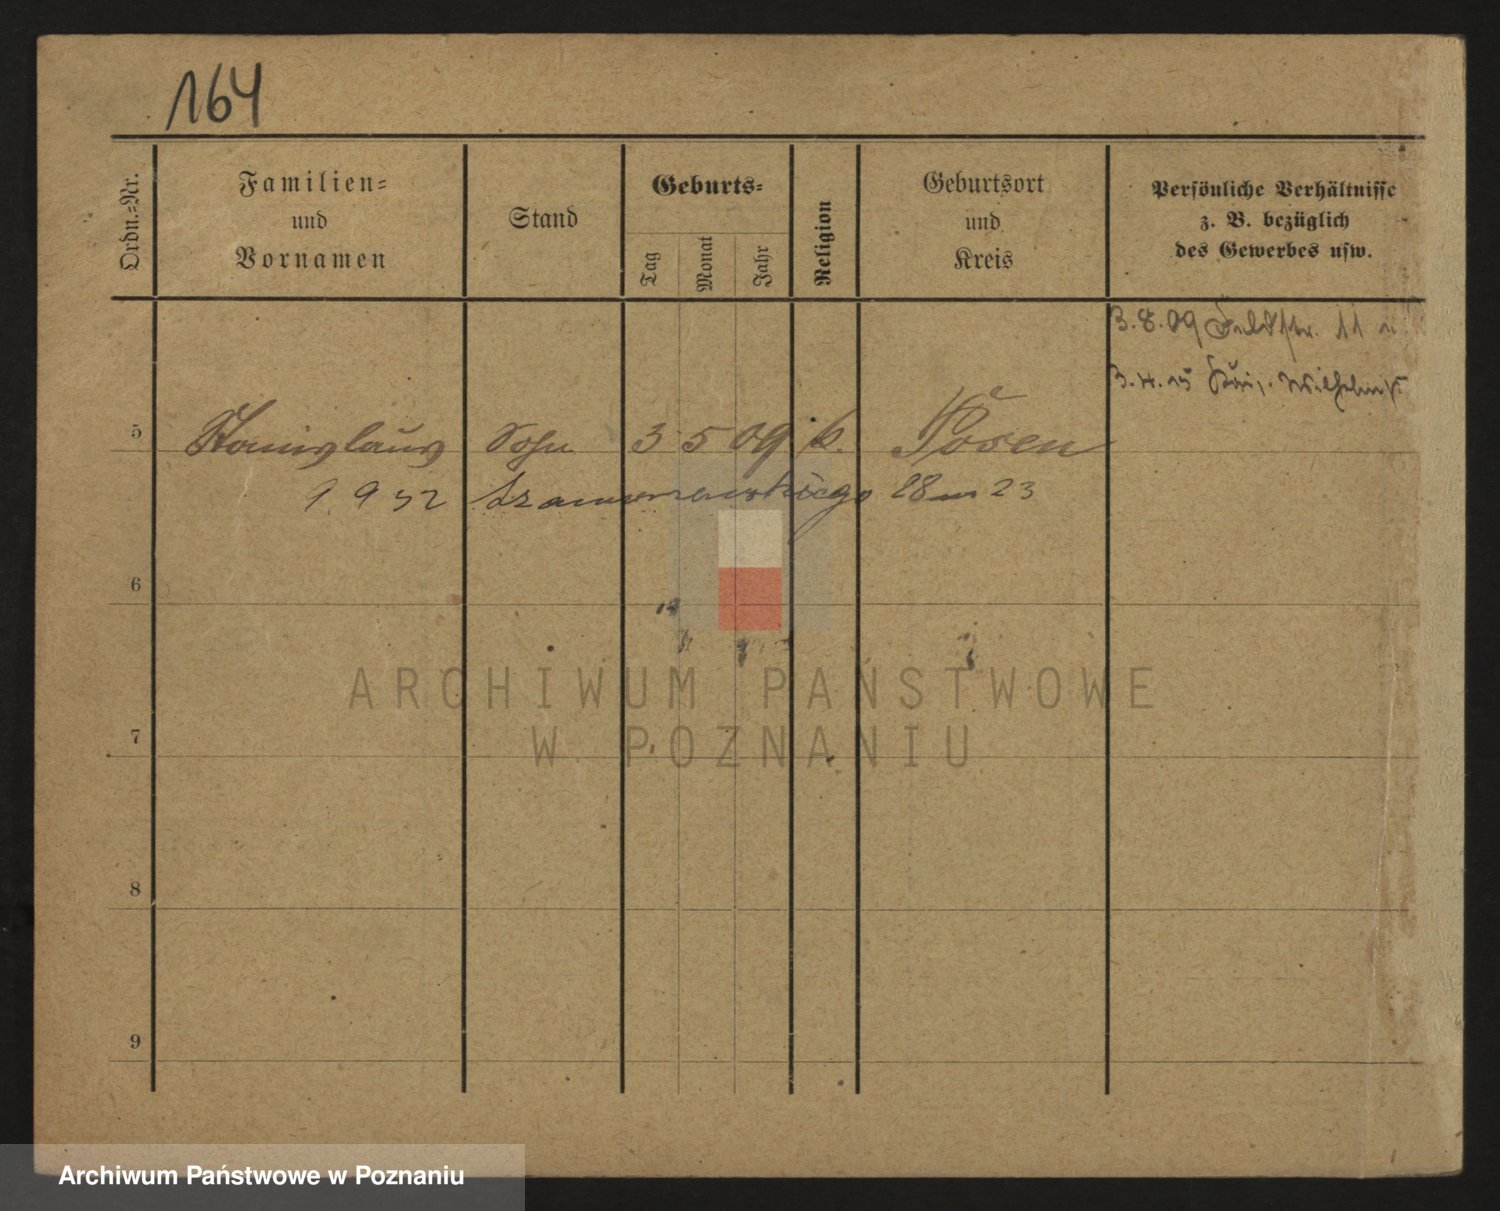 164
Ordn.-Nr.
Familien-
und
Vornamen
Stand
Geburts-
Tag
Monat
Jahr
Religion
Geburtsort
und
Kreis
Persönliche Verhältnisse
z. B. bezüglich
des Gewerbes usw.
3.8.09 Feldstr. 11
3.4.15 Wilhelmstr.
5 Sohn 3 5 09 k. Posen
1 9 32 Szamarzewskiego 28 m 23
6
7
8
9
ARCHIWUM PAŃSTWOWE
W POZNANIU
Archiwum Państwowe w Poznaniu